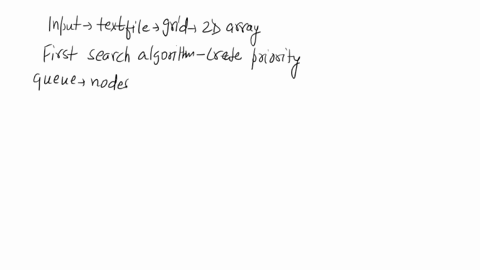 Input → textfile → grid → 2D array
First search algorithm - Create priority
queue → nodes